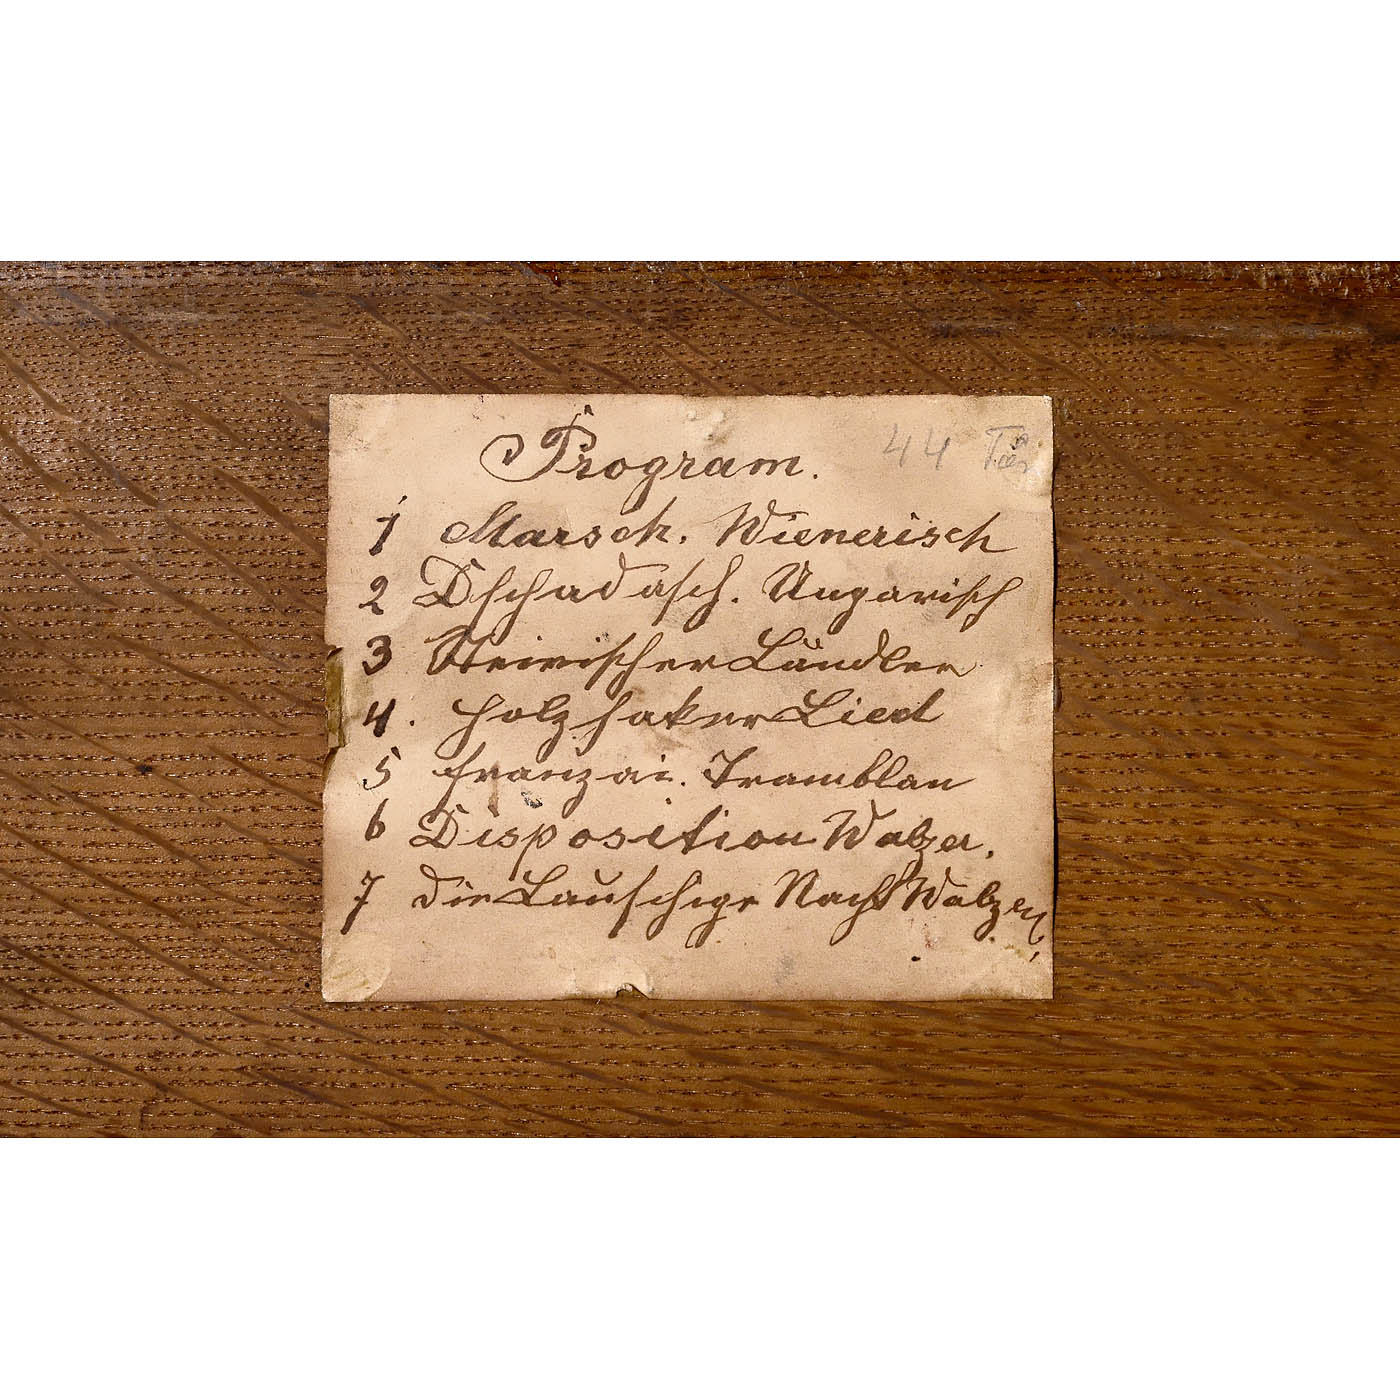 Program. 44
1 Marsch. Wienerisch
2 Dschadasch. Ungarisch
3 Steirischer Ländler
4. Holzhaker Lied
5 Franzai. Tramblan
6 Disposition Walzer.
7 Die Lauschige Nacht Walzer.